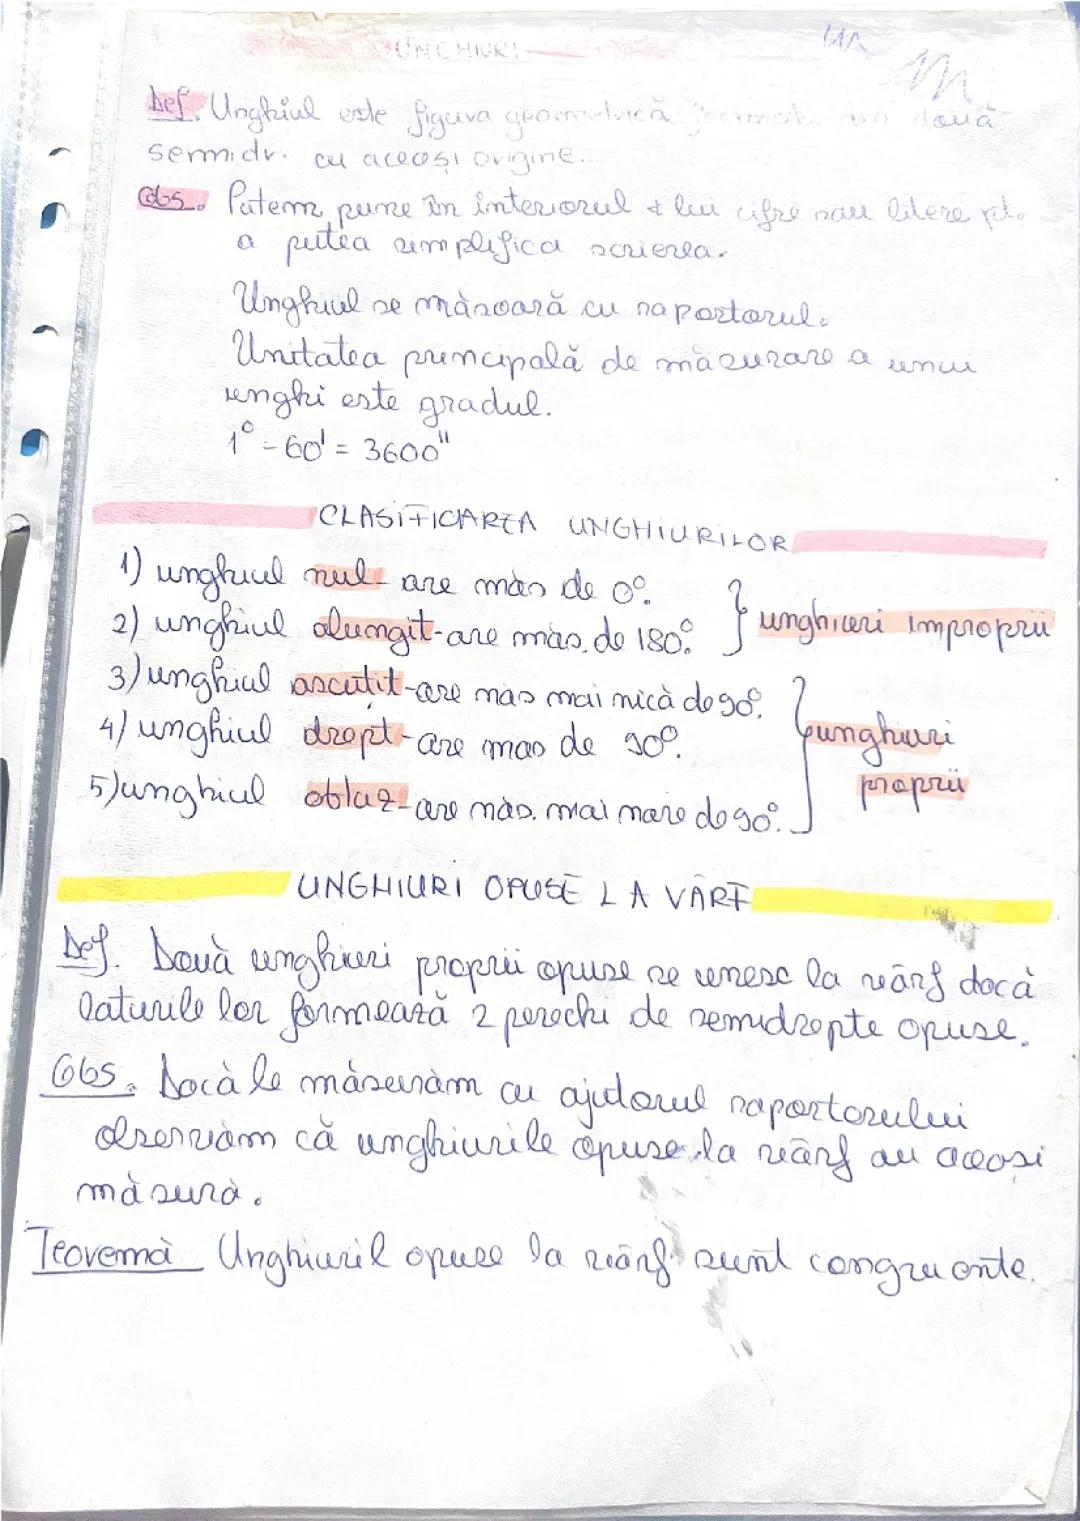 UNGHIURI
Def. Unghiul este figura geometrică formată din două
semidr. cu aceași origine.
Obs. Putem pune în interiorul ∢ lui cifre sau litere pt.
a putea simplifica scrierea.
Unghiul se măsoară cu raportorul.
Unitatea principală de măsurare a unui
unghi este gradul.
1° = 60' = 3600"
CLASIFICAREA UNGHIURILOR
1) unghiul nul - are măs de 0°.
2) unghiul alungit - are măs. de 180°. } unghiuri improprii
3) unghiul ascuțit - are măs mai mică de 90°.
4) unghiul drept - are mas de 90°. } unghiuri
proprii
5) unghiul obtuz - are măs. mai mare de 90°.
UNGHIURI OPUSE LA VÂRF
Def. Două unghiuri proprii opuse se unesc la vârf dacă
laturile lor formează 2 perechi de semidrepte opuse.
Obs. Dacă le măsurăm cu ajutorul raportorului
observăm că unghiurile opuse la vârf au aceași
măsură.
Teoremă Unghiuril opuse la vârf sunt congruente.